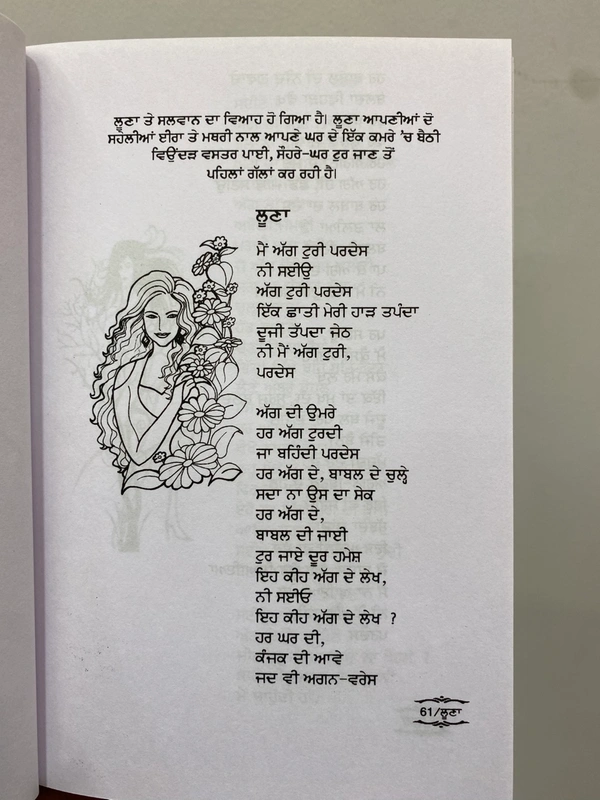 ਲੂਣਾ ਤੇ ਸਲਵਾਨ ਦਾ ਵਿਆਹ ਹੋ ਗਿਆ ਹੈ। ਲੂਣਾ ਆਪਣੀਆਂ ਦੋ
ਸਹੇਲੀਆਂ ਈਰਾ ਤੇ ਮਥਰੀ ਨਾਲ ਆਪਣੇ ਘਰ ਦੇ ਇੱਕ ਕਮਰੇ 'ਚ ਬੈਠੀ
ਵਿਉਂਦੜ ਵਸਤਰ ਪਾਈ, ਸੌਹਰੇ-ਘਰ ਟੁਰ ਜਾਣ ਤੋਂ
ਪਹਿਲਾਂ ਗੱਲਾਂ ਕਰ ਰਹੀ ਹੈ।
ਲੂਣਾ
ਮੈਂ ਅੱਗ ਟੁਰੀ ਪਰਦੇਸ
ਨੀ ਸਈਉ
ਅੱਗ ਟੁਰੀ ਪਰਦੇਸ
ਇੱਕ ਛਾਤੀ ਮੇਰੀ ਹਾੜ ਤਪੰਦਾ
ਦੂਜੀ ਤੱਪਦਾ ਜੇਠ
ਨੀ ਮੈਂ ਅੱਗ ਟੁਰੀ,
ਪਰਦੇਸ
ਅੱਗ ਦੀ ਉਮਰੇ
ਹਰ ਅੱਗ ਟੁਰਦੀ
ਜਾ ਬਹਿੰਦੀ ਪਰਦੇਸ
ਹਰ ਅੱਗ ਦੇ, ਬਾਬਲ ਦੇ ਚੁਲ੍ਹੇ
ਸਦਾ ਨਾ ਉਸ ਦਾ ਸੇਕ
ਹਰ ਅੱਗ ਦੇ,
ਬਾਬਲ ਦੀ ਜਾਈ
ਟੁਰ ਜਾਏ ਦੂਰ ਹਮੇਸ਼
ਇਹ ਕੀਹ ਅੱਗ ਦੇ ਲੇਖ,
ਨੀ ਸਈਓ
ਇਹ ਕੀਹ ਅੱਗ ਦੇ ਲੇਖ ?
ਹਰ ਘਰ ਦੀ,
ਕੰਜਕ ਦੀ ਆਵੇ
ਜਦ ਵੀ ਅਗਨ-ਵਰੇਸ
61/ਲੂਣਾ